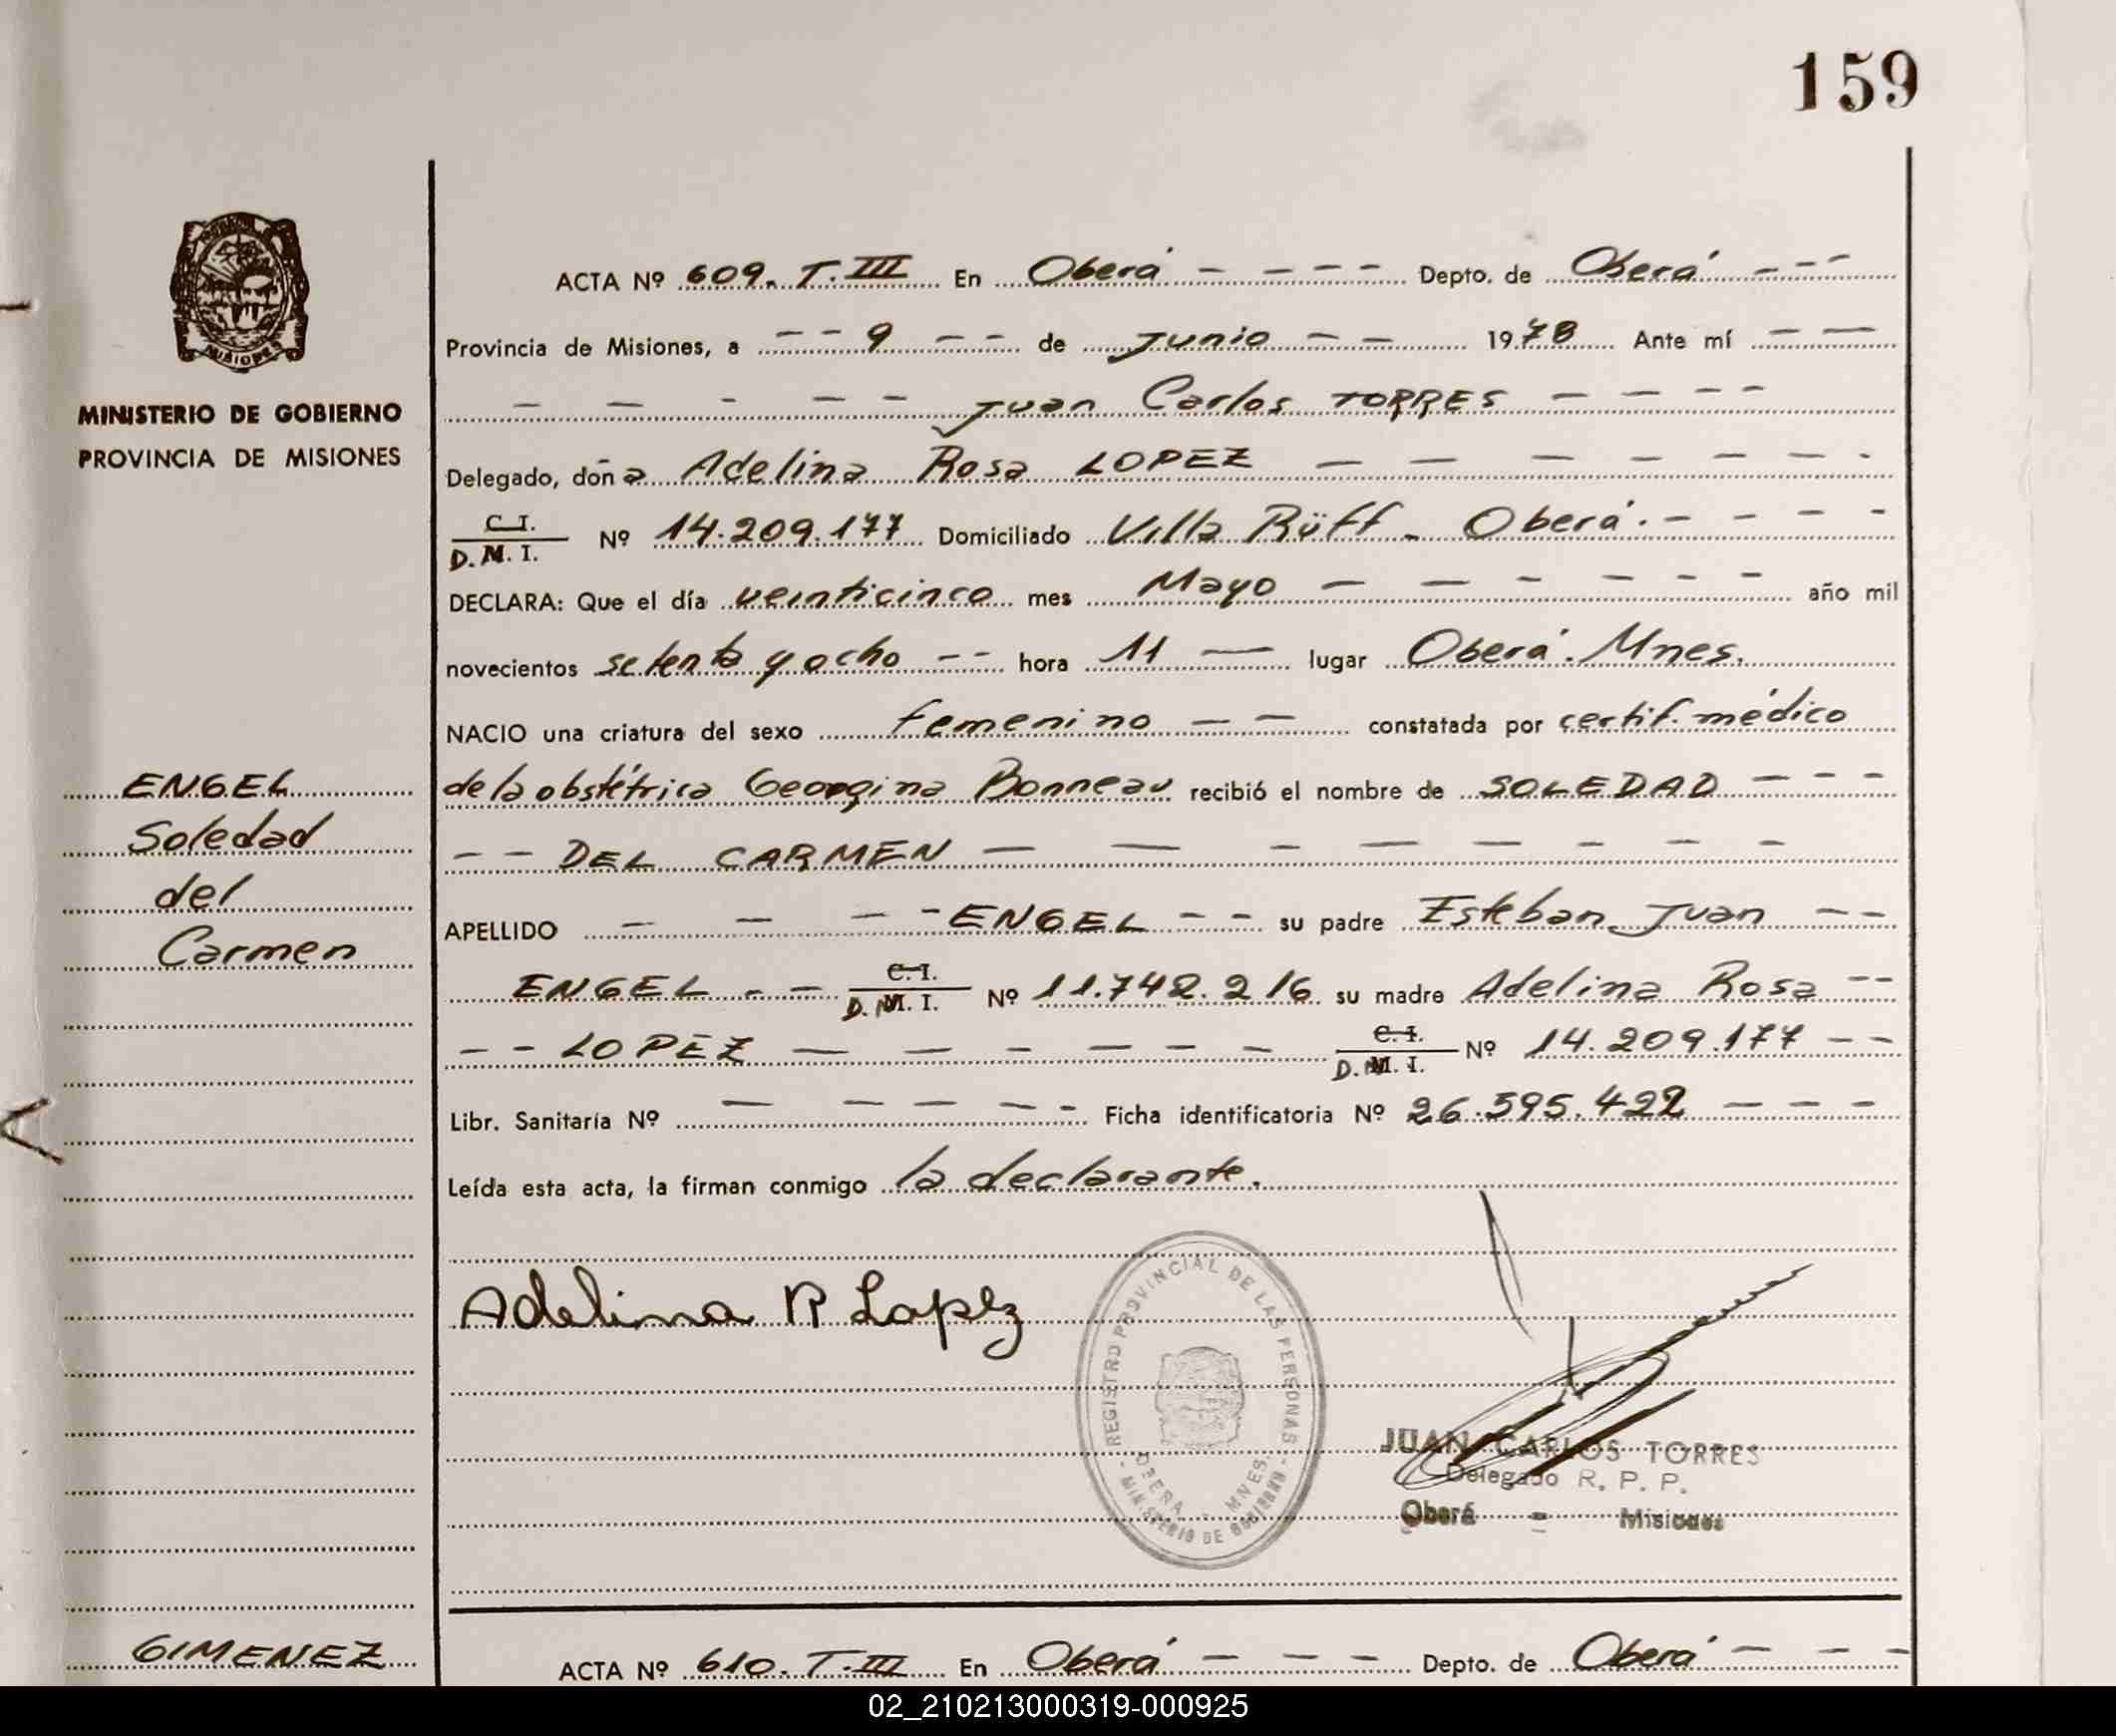 159
MINISTERIO DE GOBIERNO
PROVINCIA DE MISIONES
ENGEL
Soledad
del
Carmen
ACTA Nº 609. T. III En Oberá Depto. de Oberá
Provincia de Misiones, a 9 de Junio 1978 Ante mí
Juan Carlos TORRES
Delegado, doña Adelina Rosa LOPEZ
C.I.
D.M.I. Nº 14.209.177 Domiciliado Villa Rüff - Oberá.
DECLARA: Que el día veinticinco mes Mayo año mil
novecientos setenta y ocho hora 11 lugar Oberá. Mnes.
NACIO una criatura del sexo femenino constatada por certif. médico
de la obstétrica Georgina Bonneau recibió el nombre de SOLEDAD
DEL CARMEN
APELLIDO ENGEL su padre Esteban Juan
ENGEL C.I. D.M.I. Nº 11.742.216 su madre Adelina Rosa
LOPEZ C.I. D.M.I. Nº 14.209.177
Libr. Sanitaria Nº Ficha identificatoria Nº 26.595.422
Leída esta acta, la firman conmigo la declarante.
Adelina R Lopez
REGISTRO PROVINCIAL DE LAS PERSONAS
OBERA - MNES.
MINISTERIO DE GOBIERNO
JUAN CARLOS TORRES
Delegado R. P. P.
Oberá - Misiones
GIMENEZ
ACTA Nº 610. T. III En Oberá Depto. de Oberá
02_210213000319-000925